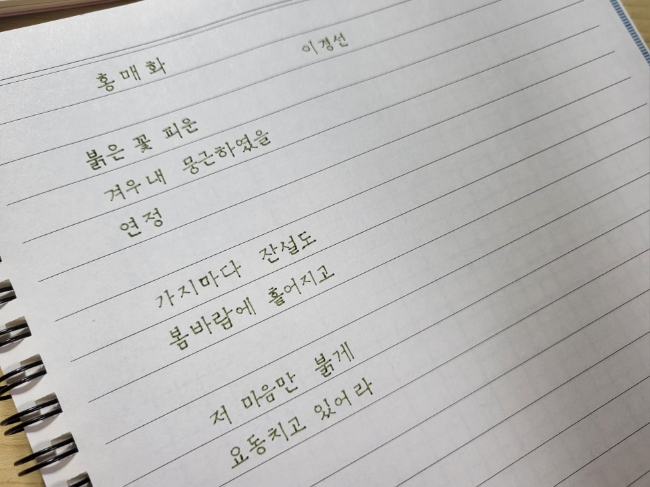 홍매화 이경선
붉은 꽃 피운
겨우내 뭉근하였을
연정
가지마다 잔설도
봄바람에 흩어지고
저 마음만 붉게
요동치고 있어라